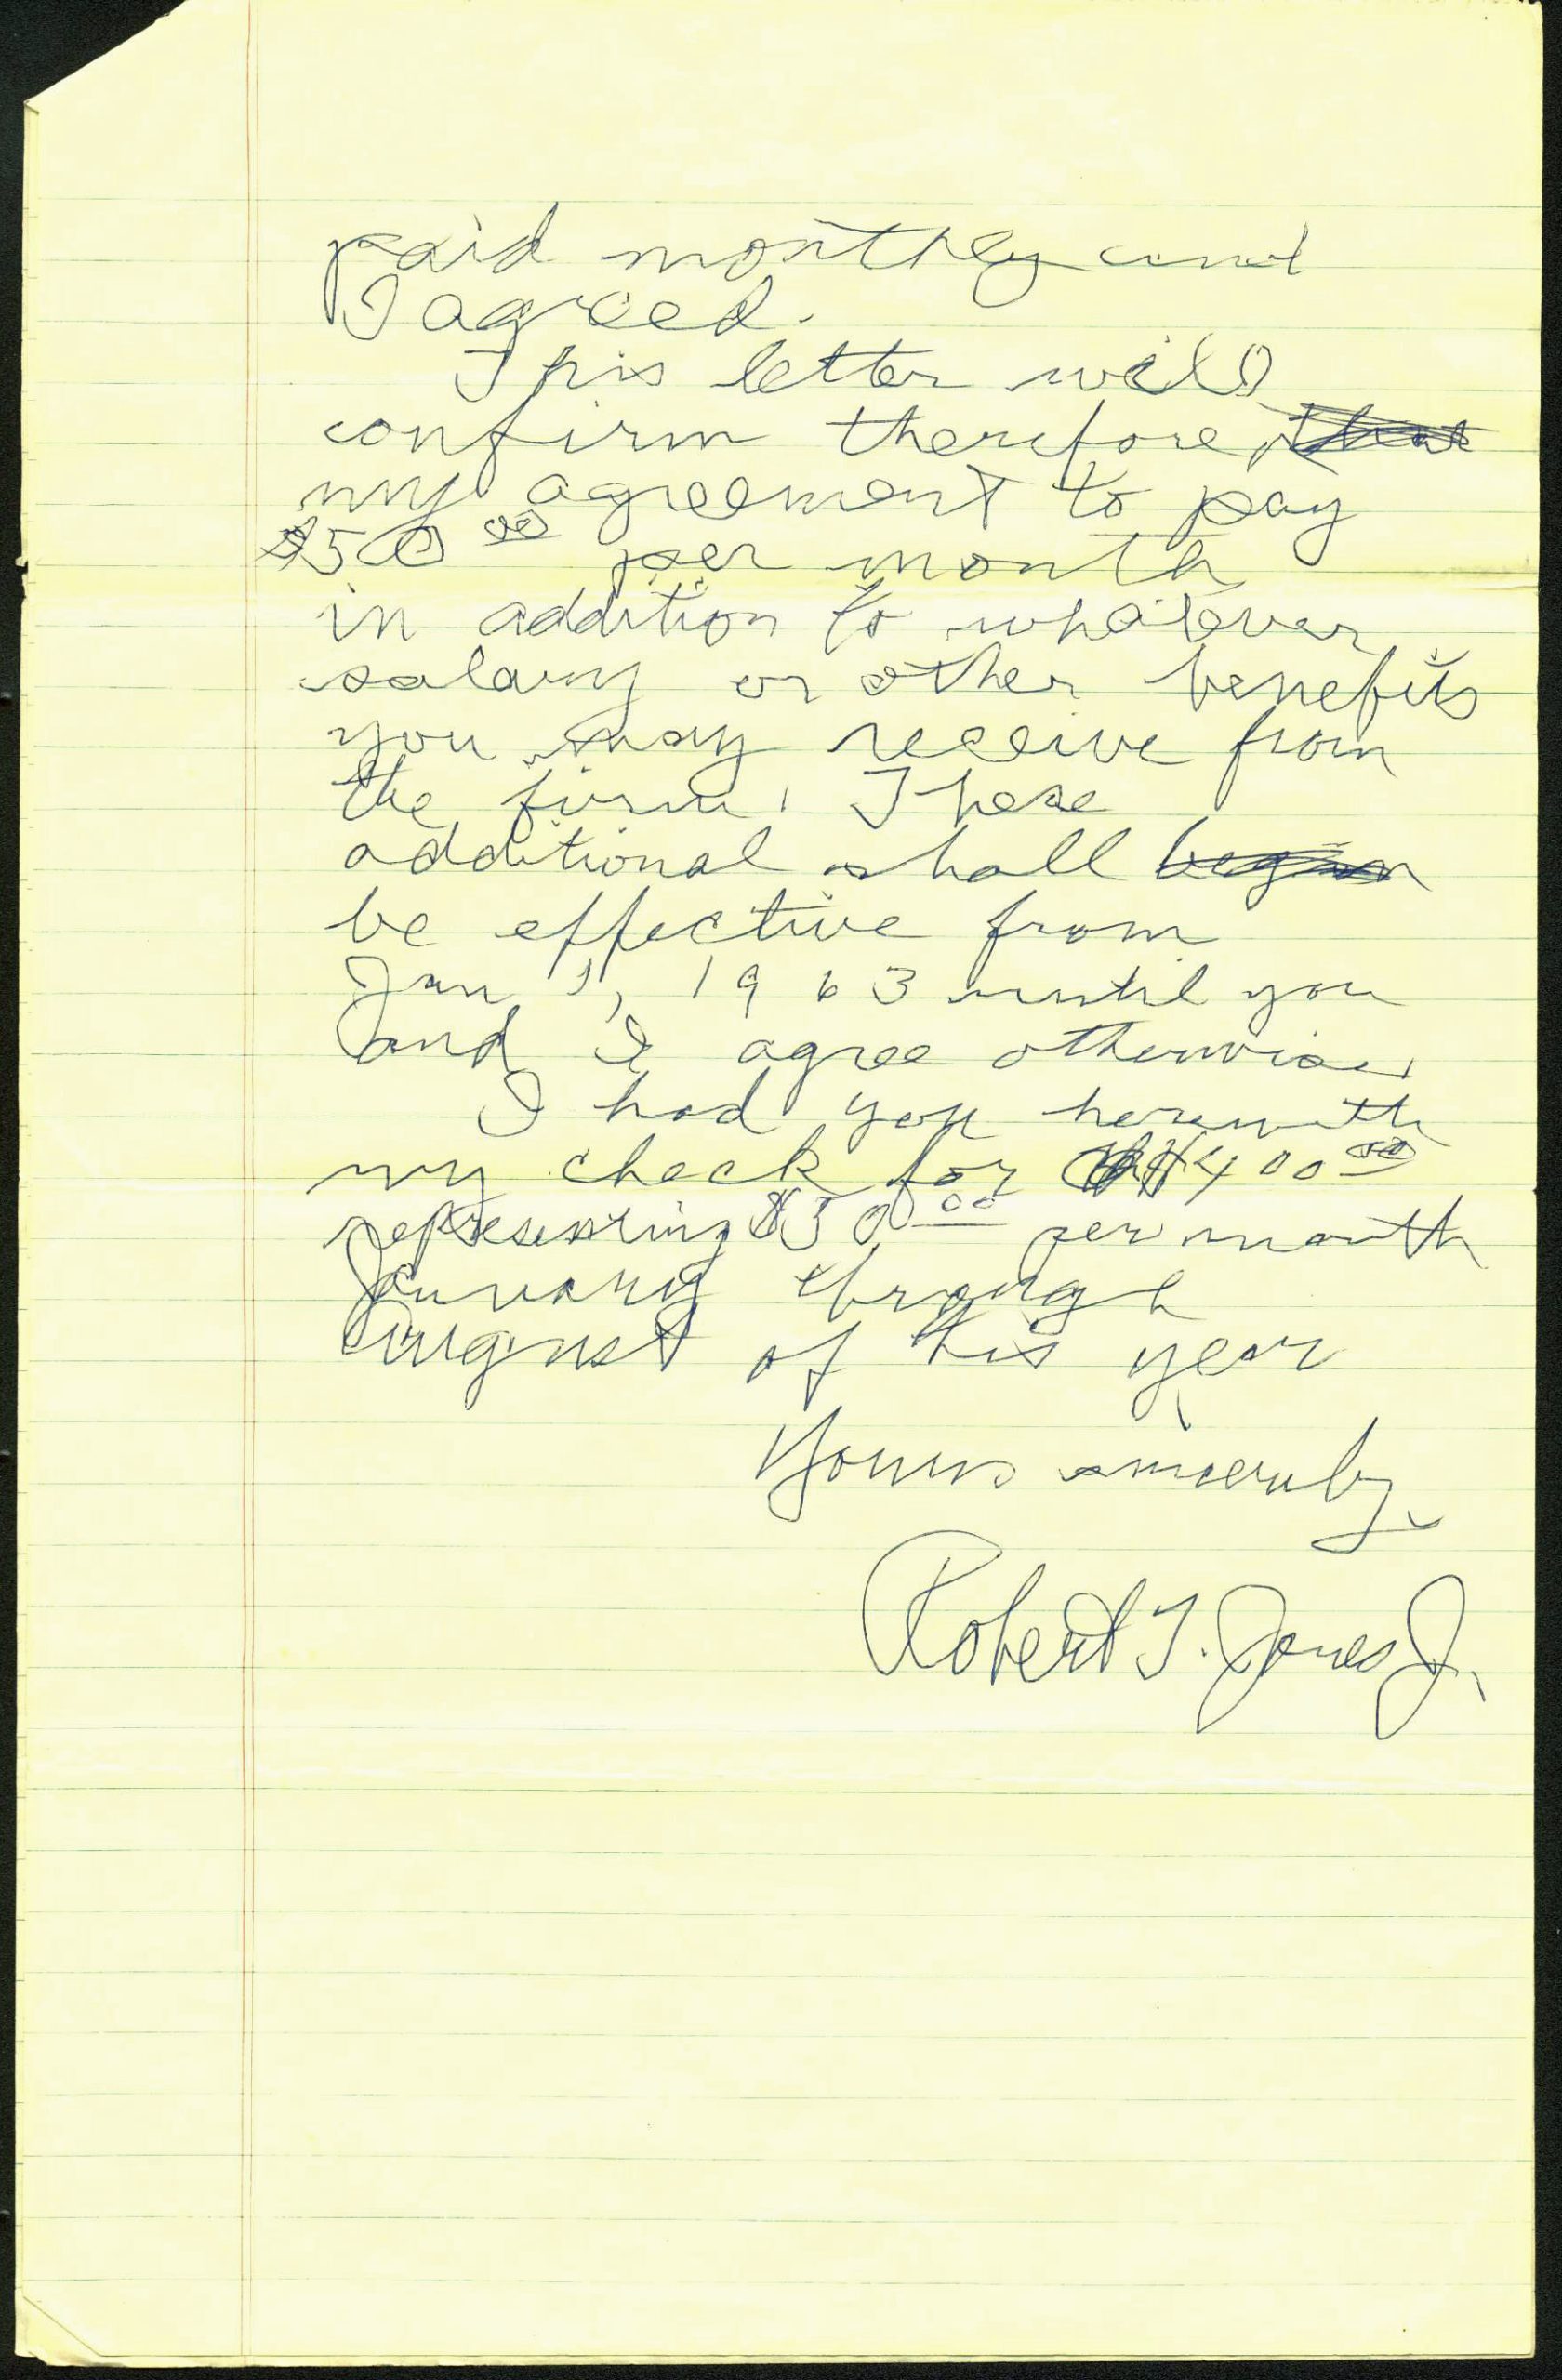 paid monthly and
I agreed.
This letter will
confirm therefore, that
my agreement to pay
$50 00 per month
in addition to whatever
salary or other benefits
you may receive from
the firm. These
additional shall began
be effective from
Jan 1, 1963 until you
and I agree otherwise.
I had you herewith
my check for $400 00
representing $50 00 per month
January through
August of this year
Yours sincerely,
Robert T. Jones Jr.